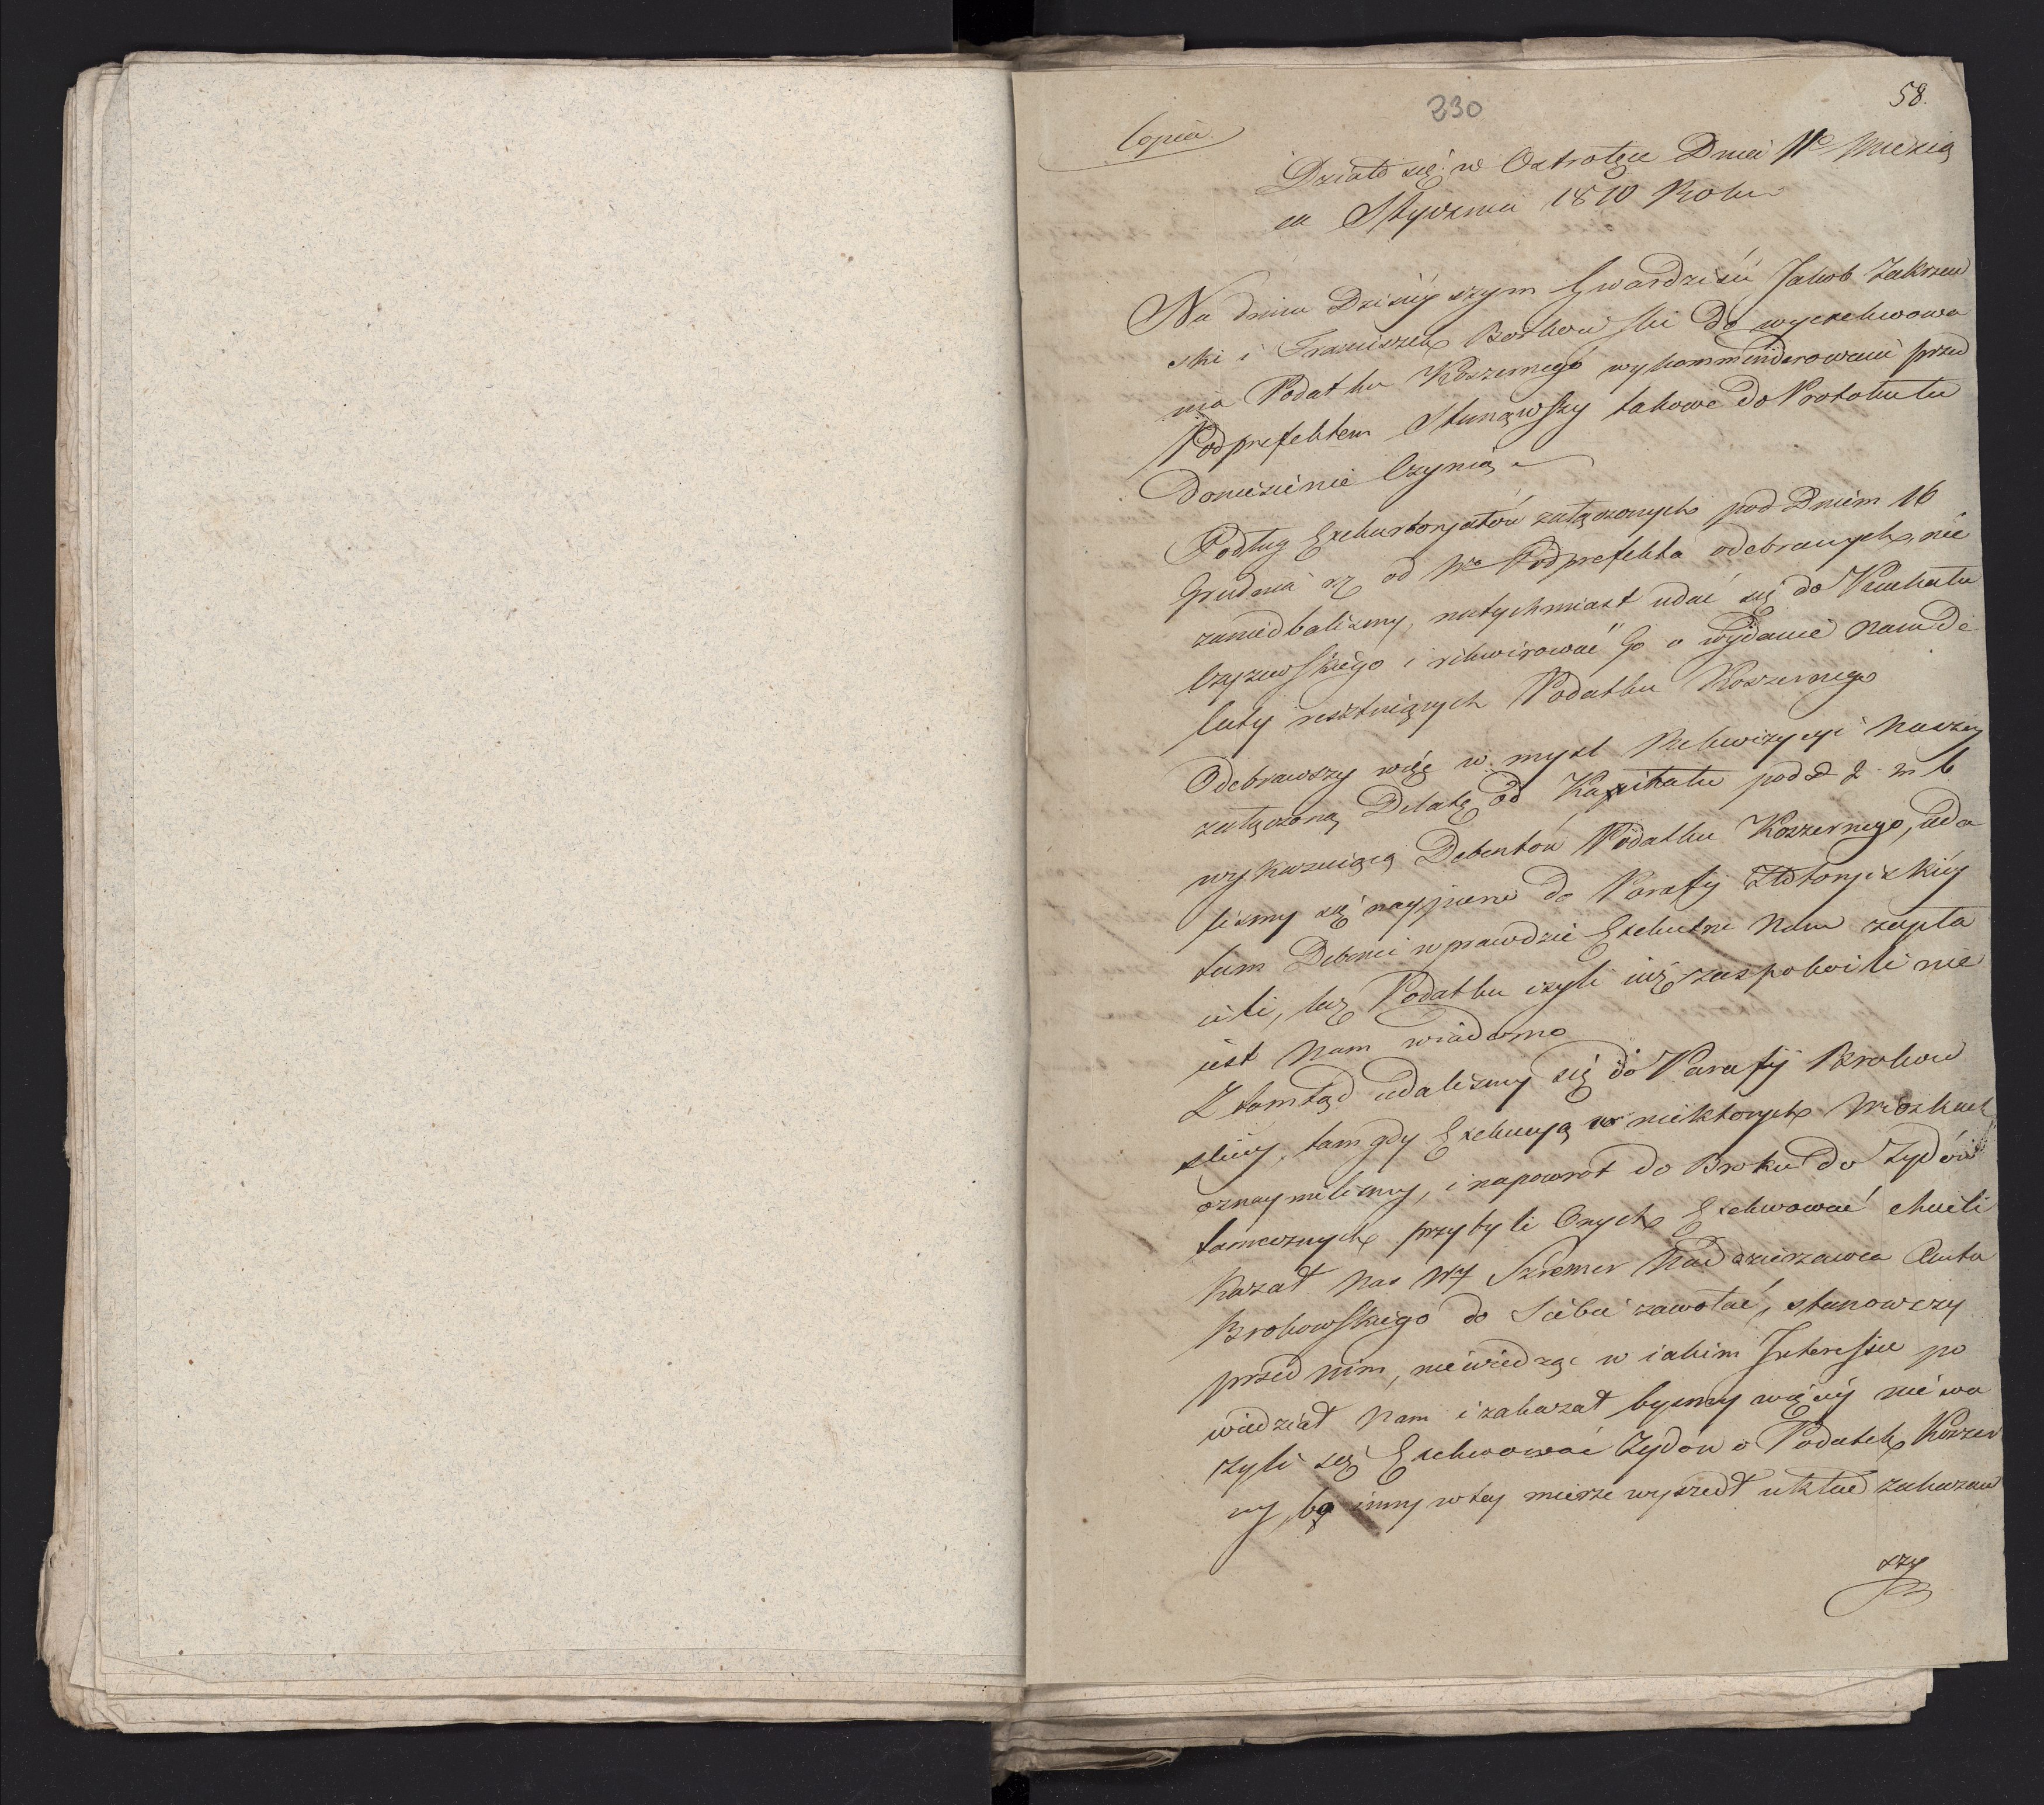 58.
230
Copia
Działo się w Ostrołęce Dnia 11º Miesią
ca Stycznia 1810 Roku
Na dniu Dzisieyszym Gwardziści Jakob Zakrzew
ski i Franciszek Borkowski do wyexekwowa
nia Podatku Koszernego wykommenderowani przed
Podprefektem Stanąwszy takowe do Protokułu
doniesienie Czynią
Podług Exekutoryatów załączonych pod Dniem 16
Grudnia od Podprefekta odebranych, nie
zaniedbalismy, natychmiast udać się do Kasikatu
Czyzewskiego i rekwirować Go o wydanie nam De
laty resztuiących Podatku Koszernego
Odebrawszy więc w mysl Rekwizycyi naszey
załączoną Delatę od Kasikatu pod
wykazuiącą Debentów Podatku Koszernego, uda
lismy się naypierw do Parafij Złotoryiskiey
tam Debenci wprawdzie Exekutne Nam zapła
cili, lecz Podatku czyli iuż zaspokoili nie
iest Nam wiadomo
Z tamtąd udalismy się do Parafij Brokow
skiey, tam gdy Exekucyą w niektorych Wioskach
oznaymilismy, i napowrot do Broku do Zydów
tamecznych przybyli Onych Exekwować chcieli
kazał nas Wy Szremer Naddzierzawca Amta
Brokowskiego do Siebie zawołać, stanowszy
przed nim, niewiedząc w iakim Interessie po
wiedział Nam i zakazał bysmy więcey nie wa
zyli się Exekwować Zydów o Podatek Koszer
ny, bo inny w tey mierze wyszedł układ zakazaw
szy